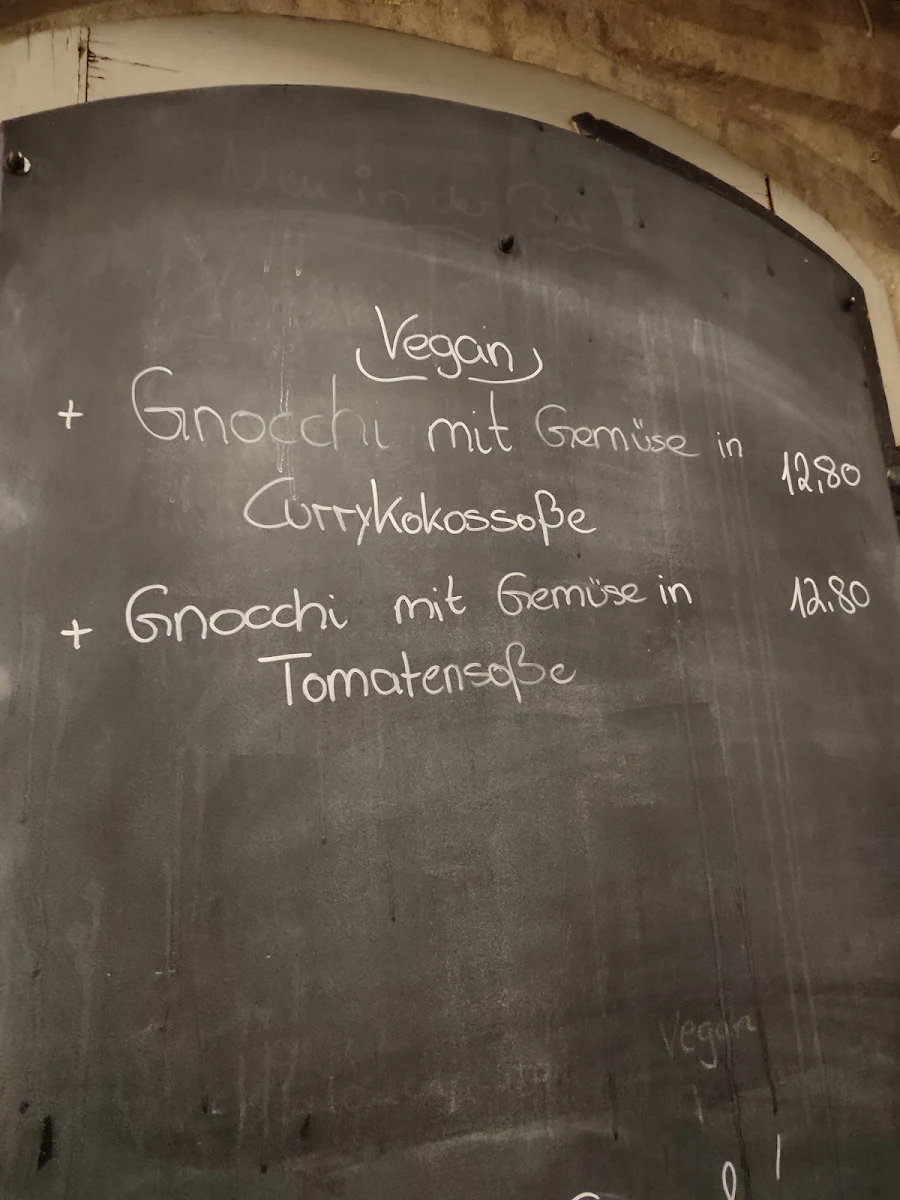 Neu in der Bar!
Vegan
+ Gnocchi mit Gemüse in 12,80
Currykokossoße
+ Gnocchi mit Gemüse in 12.80
Tomatensoße
Vegan